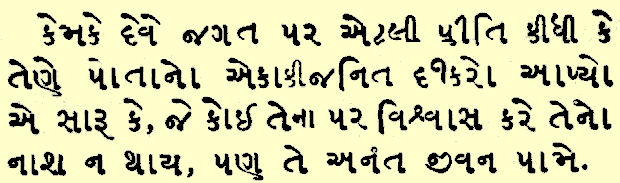 કેમકે દેવે જગત પર એટલી પ્રીતિ કીધી કે
તેણે પોતાનો એકાકીજનિત દીકરો આપ્યો
એ સારૂ કે, જે કોઈ તેના પર વિશ્વાસ કરે તેનો
નાશ ન થાય, પણ તે અનંત જીવન પામે.